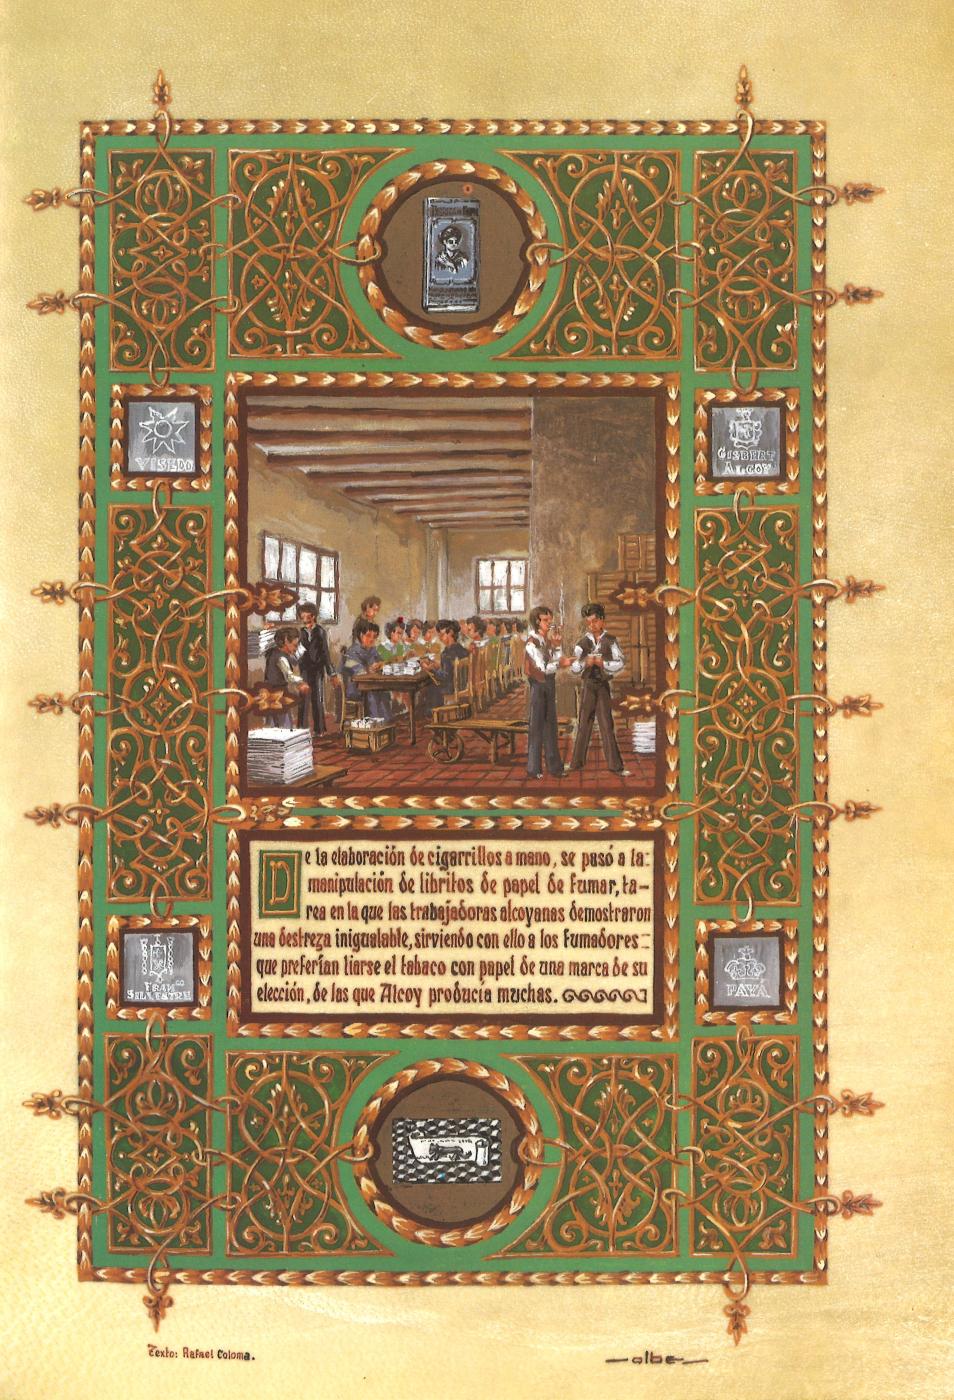 VISEDO
GISBERT
ALCOY
De la elaboración de cigarrillos a mano, se pasó a la
manipulación de librillos de papel de fumar, ta-
rea en la que las trabajadoras alcoyanas demostraron
una destreza inigualable, sirviendo con ello a los fumadores
que preferían liarse el tabaco con papel de una marca de su
elección, de las que Alcoy producía muchas.
FRAN
SILVESTRE
PAYÁ
Texto: Rafael Coloma.
albe